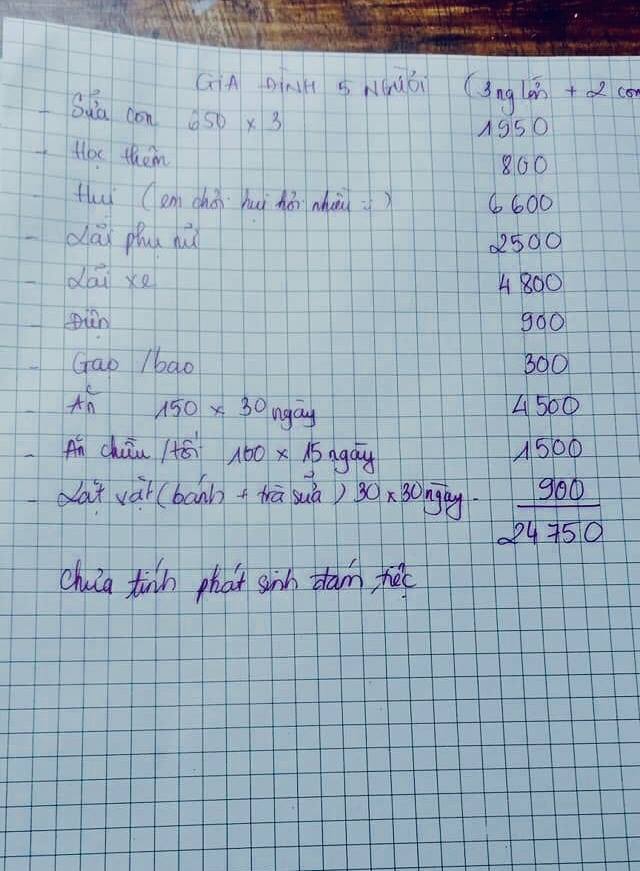 GIA ĐÌNH 5 NGƯỜI (3 ng lớn + 2 con
- Sữa con 650 x 3 1950
- Học thêm 800
- Hụi (em chơi hụi hơi nhiều :) 6 600
- Lãi phụ nữ 2500
- Lãi xe 4 800
- Điện 900
- Gạo /bao 300
- Ăn 150 x 30 ngày 4 500
- Ăn chiều /tối 100 x 15 ngày 1500
- Lặt vặt (bánh + trà sữa) 30 x 30 ngày - 900
24 750
Chưa tính phát sinh đám tiệc